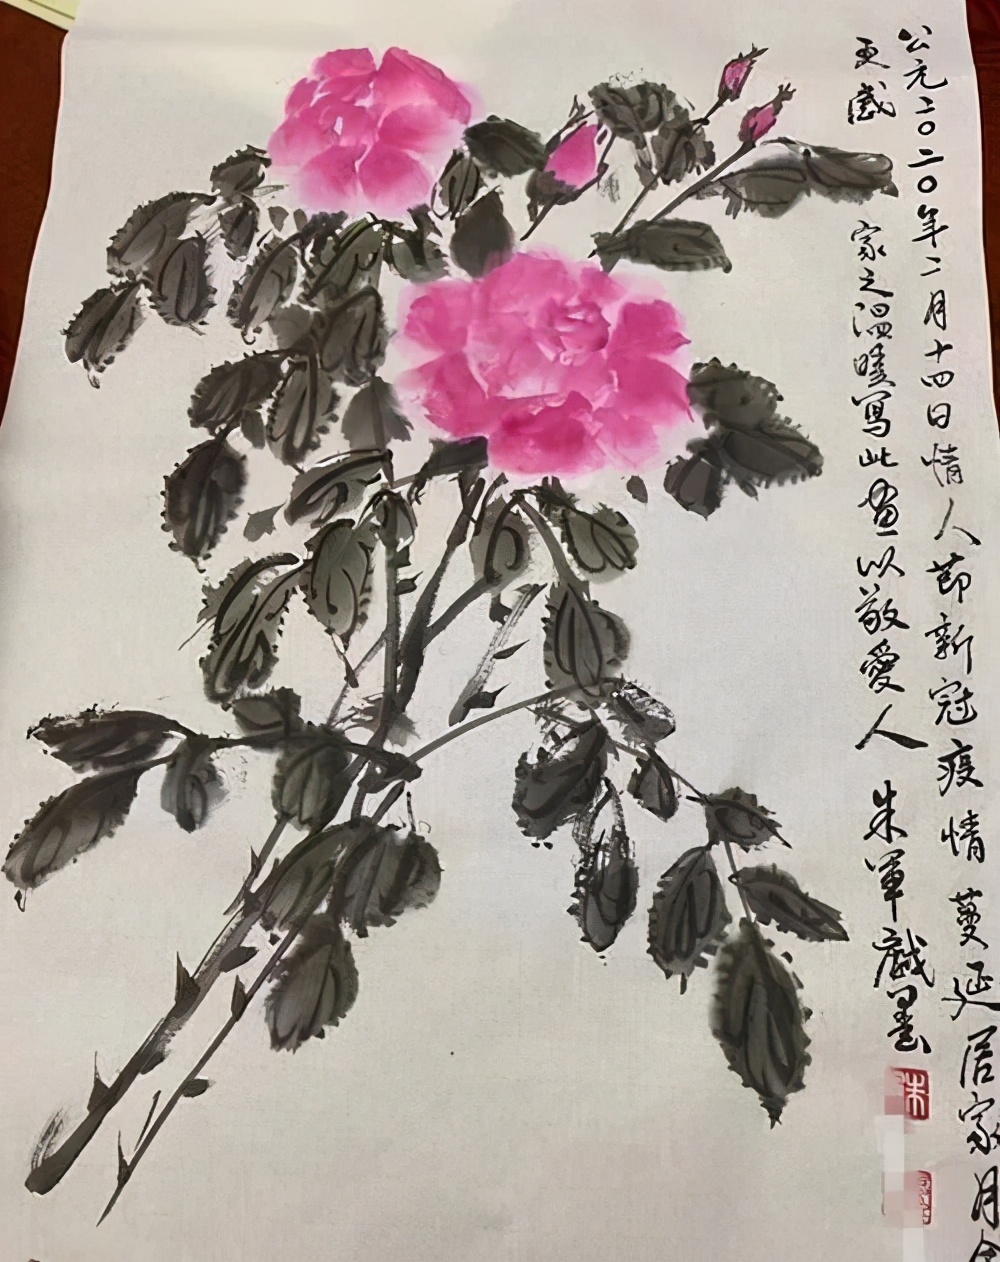 公元二〇二〇年二月十四日情人节新冠疫情蔓延居家月余
更感 家之温暖写此画以敬爱人 朱军戏墨
朱